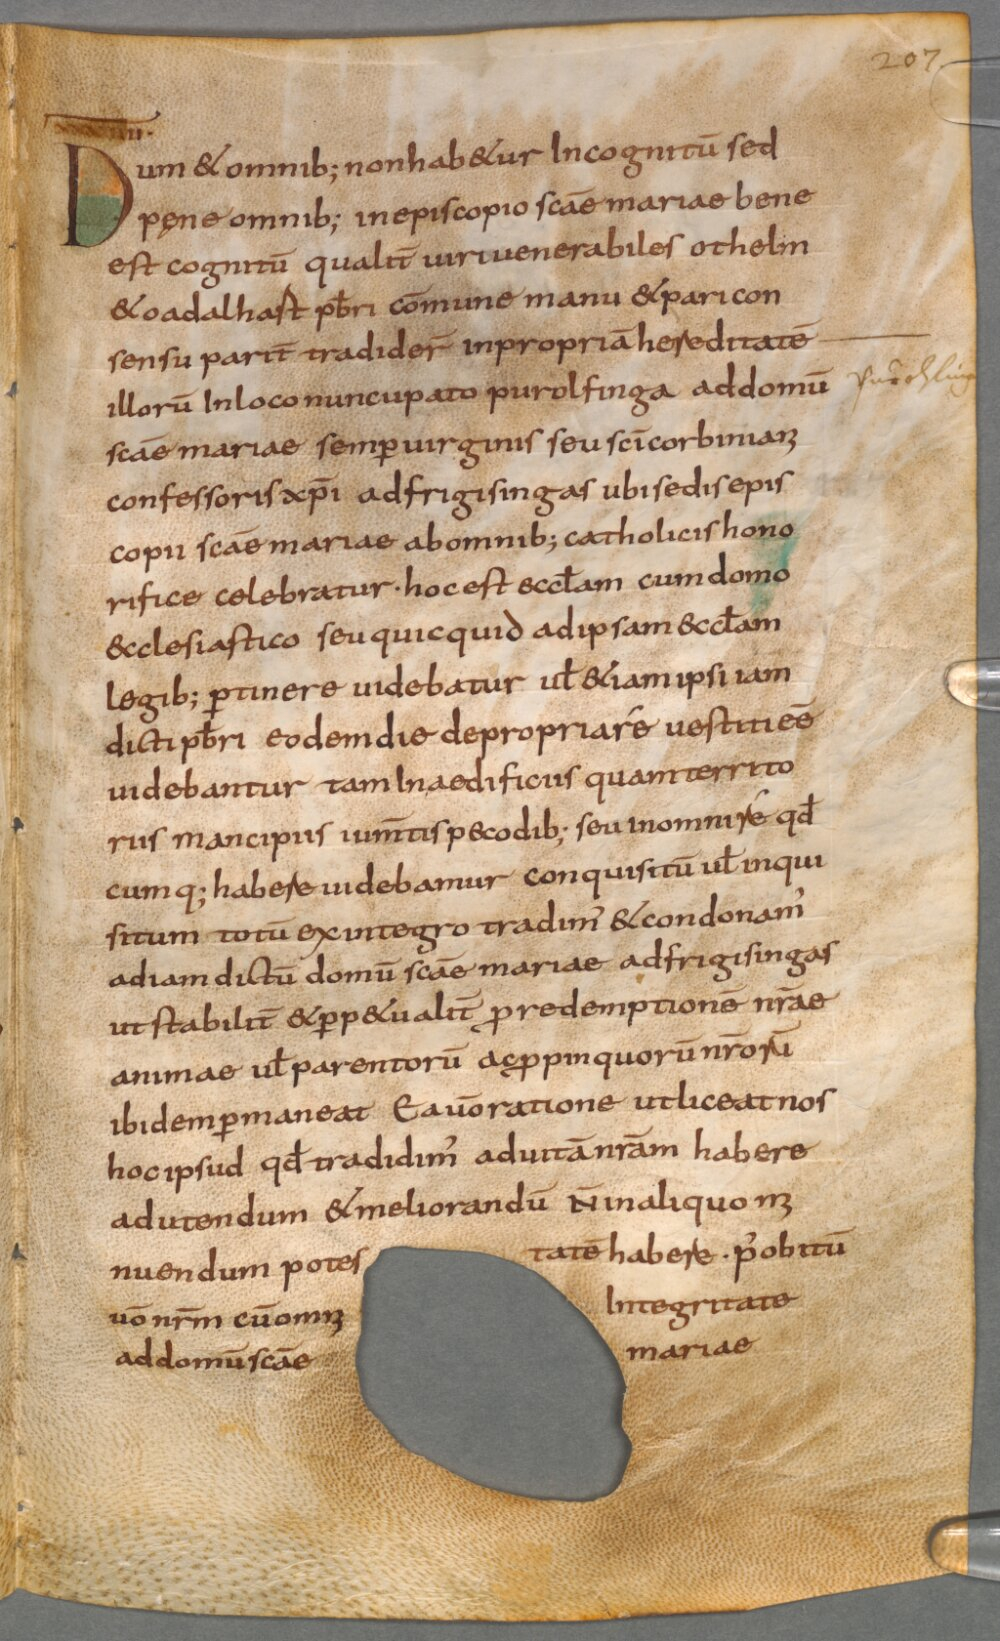 207
Dum & omnib; nonhab&ur Incognitū sed
pęne omnib; inepiscopio scāe mariae bene
est cognitū qualit̄ uiri uenerabiles othelm
& oadalhast pb̄ri cōmune manu & pari con
sensu parit̄ tradider̄ inpropriā hereditatē
illorū Inloco nuncupato purolfinga addomū
scāe mariae semp̱ uirginis seu scī corbiniani
confessoris xp̄i adfrigisingas ubi sedis epis
copii scāe mariae abomnib; catholicis hono
rifice celebratur · hoc est &ccl̄am cum domo
&cclesiastico seu quicquid adipsam &ccl̄am
legib; p̱tinere uidebatur ul̄ &iam ipsi iam
dicti pb̄ri eodem die depropria rē uestiti eē̄
uidebantur tam Inaedificiis quam territo
riis mancipiis ium̄tis p&codib; seu inomni rē qd̄
cumq; habere uidebamur conquisitū ul̄ inqui
situm totū ex integro tradim̓ & condonam̓
adiam dictū domū scāe mariae adfrigisingas
ut stabilit̄ & p̱p&ualit̄ p̱redemptionē nr̄ae
animae ul̄ parentorū ac p̱pinquorū nr̄orū
ibidem p̱maneat Ea uō ratione ut liceat nos
hoc ipsud qd̄ tradidim̓ aduitā nr̄am habere
adutendum & meliorandū N̄ inaliquo mi
nuendum potes tatē habere · p̓ obitū
uō nr̄m cū omni Integritate
addomū scāe mariae